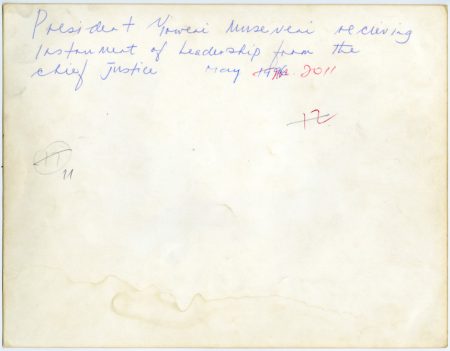 President Yoweri Museveni recieving
Instrument of Leadership from the
chief Justice May 2011
12
11